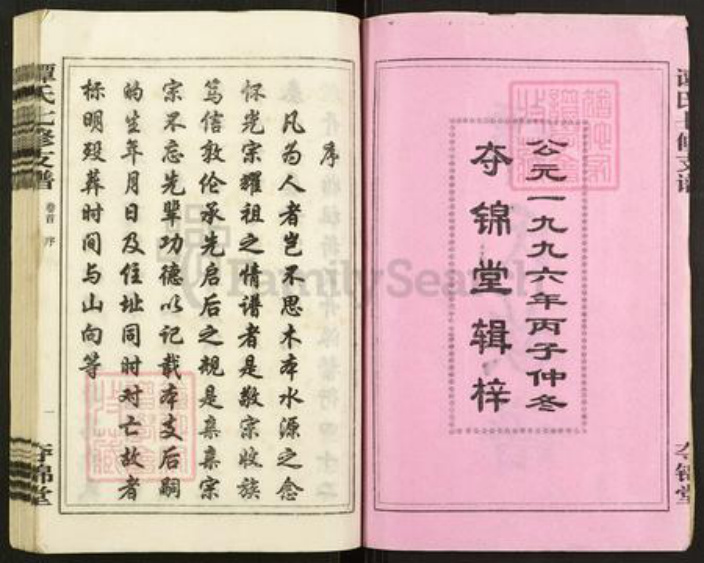 譚氏七修支谱
公元一九九六年丙子仲冬
夺锦堂辑梓
夺锦堂
序
凡为人者岂不思木本水源之念
怀光宗耀祖之情谱者是敬宗收族
笃信敦伦承先启后之规是亲亲宗
宗不忘先辈功德以记载本支后嗣
的生年月日及住址同时对亡故者
标明殁葬时间与山向等
譚氏七修支谱
卷首 序
一
夺锦堂
FamilySearch